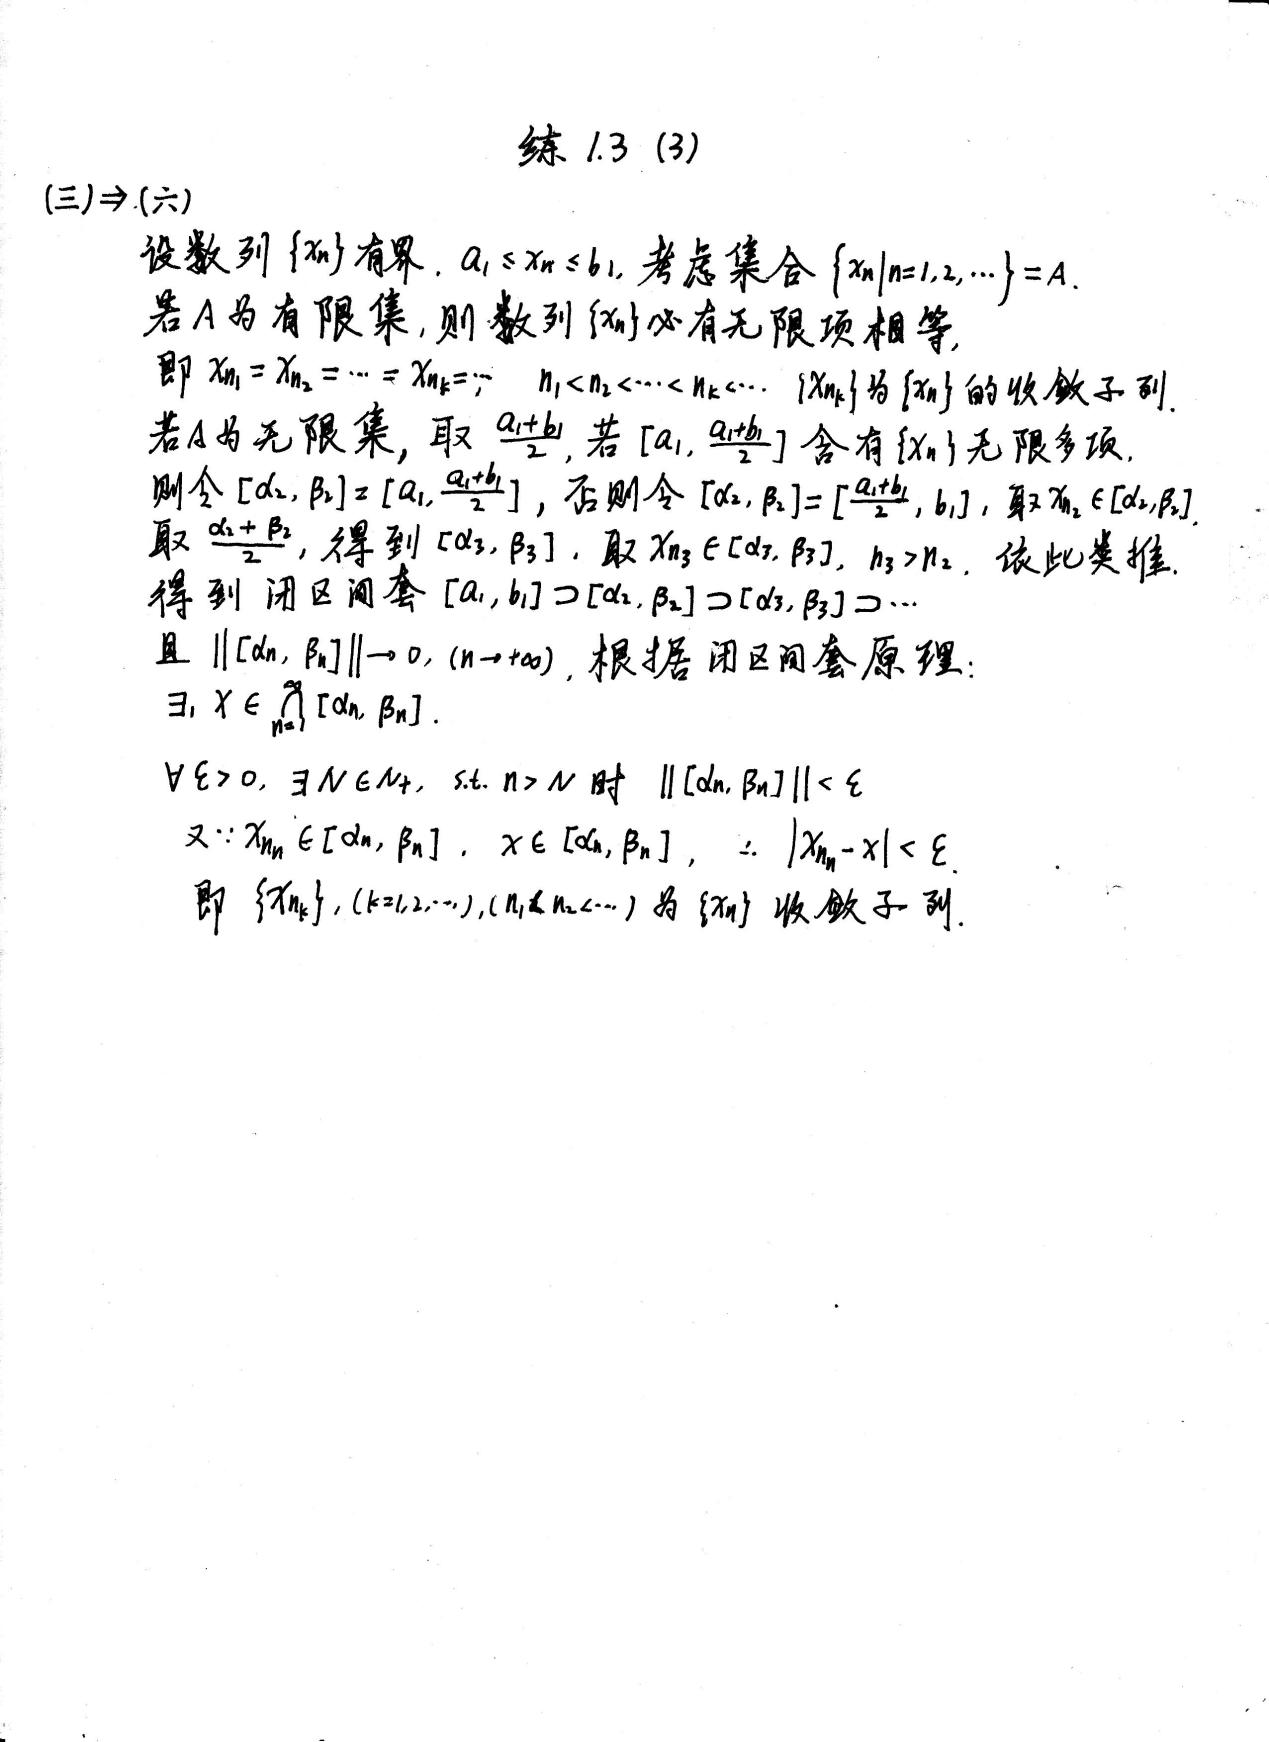 练 1.3 (3)
(三)⇒(六)
设数列 {xₙ} 有界. a₁ ≤ xₙ ≤ b₁, 考虑集合 {xₙ|n=1,2,⋯} = A.
若A为有限集, 则数列{xₙ}必有无限项相等,
即 x_{n₁} = x_{n₂} = ⋯ = x_{n_k} = ⋯, n₁<n₂<⋯<n_k<⋯ {x_{n_k}}为{xₙ}的收敛子列.
若A为无限集, 取 (a₁+b₁)/2, 若 [a₁, (a₁+b₁)/2] 含有{xₙ}无限多项,
则令 [α₂, β₂] = [a₁, (a₁+b₁)/2], 否则令 [α₂, β₂] = [(a₁+b₁)/2, b₁], 取 x_{n₂} ∈ [α₂, β₂].
取 (α₂+β₂)/2, 得到 [α₃, β₃]. 取 x_{n₃} ∈ [α₃, β₃], n₃>n₂. 依此类推.
得到 闭区间套 [a₁, b₁] ⊃ [α₂, β₂] ⊃ [α₃, β₃] ⊃ ⋯
且 ||[αₙ, βₙ]|| → 0, (n→+∞), 根据闭区间套原理:
∃₁ x ∈ ⋂_{n=1}^{∞} [αₙ, βₙ].
∀ε>0, ∃N∈N₊, s.t. n>N 时 ||[αₙ, βₙ]|| < ε
又∵ x_{nₙ} ∈ [αₙ, βₙ], x ∈ [αₙ, βₙ], ∴ |x_{nₙ} - x| < ε.
即 {x_{n_k}}, (k=1,2,⋯), (n₁<n₂<⋯) 为 {xₙ} 收敛子列.